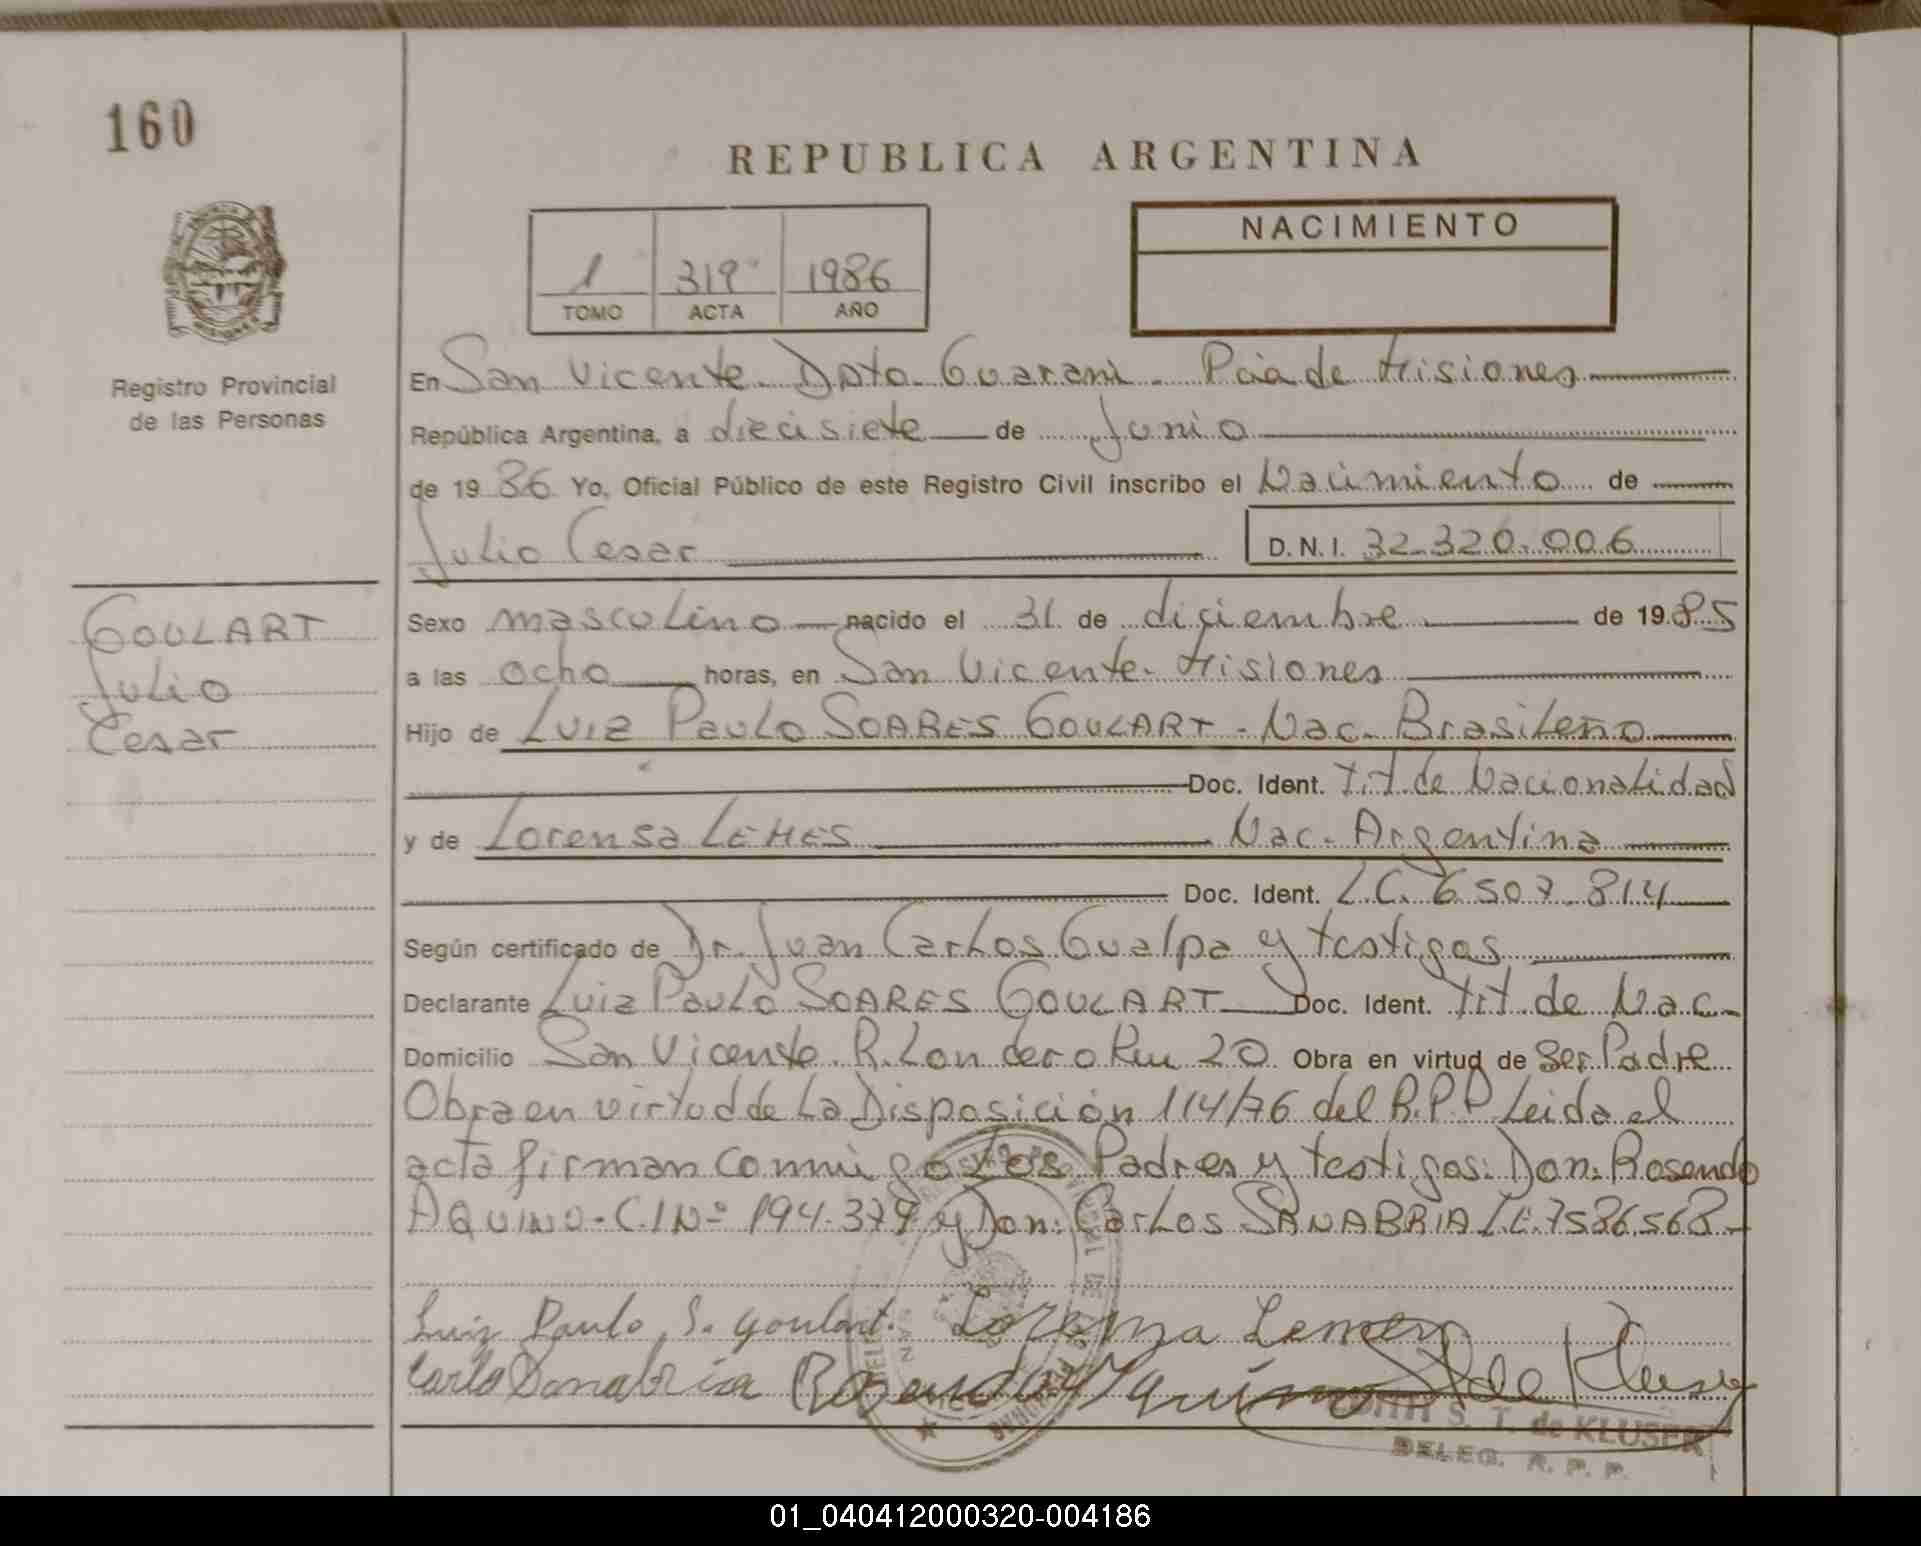 160
REPUBLICA ARGENTINA
NACIMIENTO
1 319 1986
TOMO ACTA AÑO
Registro Provincial
de las Personas
En San Vicente. Dpto. Guarani. Pcia de Misiones
República Argentina, a diecisiete de Junio
de 19 86 Yo, Oficial Público de este Registro Civil inscribo el Nacimiento de
Julio Cesar D.N.I. 32.320.006
GOULART
Julio
Cesar
Sexo masculino nacido el 31 de diciembre de 19 85
a las ocho horas, en San Vicente. Misiones
Hijo de Luiz Paulo SOARES GOULART - Nac. Brasileño
Doc. Ident. Tit. de Nacionalidad
y de Lorensa LEMES Nac. Argentina
Doc. Ident. L.C. 6507.814
Según certificado de Dr. Juan Carlos Gualpa y testigos
Declarante Luiz Paulo SOARES GOULART Doc. Ident. Tit. de Nac.
Domicilio San Vicente. R. Londero Km 20 Obra en virtud de Ser Padre
Obra en virtud de La Disposición 114/76 del R.P.P Leida el
acta firman conmigo Los Padres y testigos: Don: Rosendo
AQUINO - C.I Nº 194.379 y Don: Carlos SANABRIA L.E. 7586568 -
Luiz Paulo S. Goulart. Lorenza Lemes
Carlo Sanabria Rosendo Aquino de Kluser
S. T. de KLUSER
DELEG. R. P. P.
01_040412000320-004186